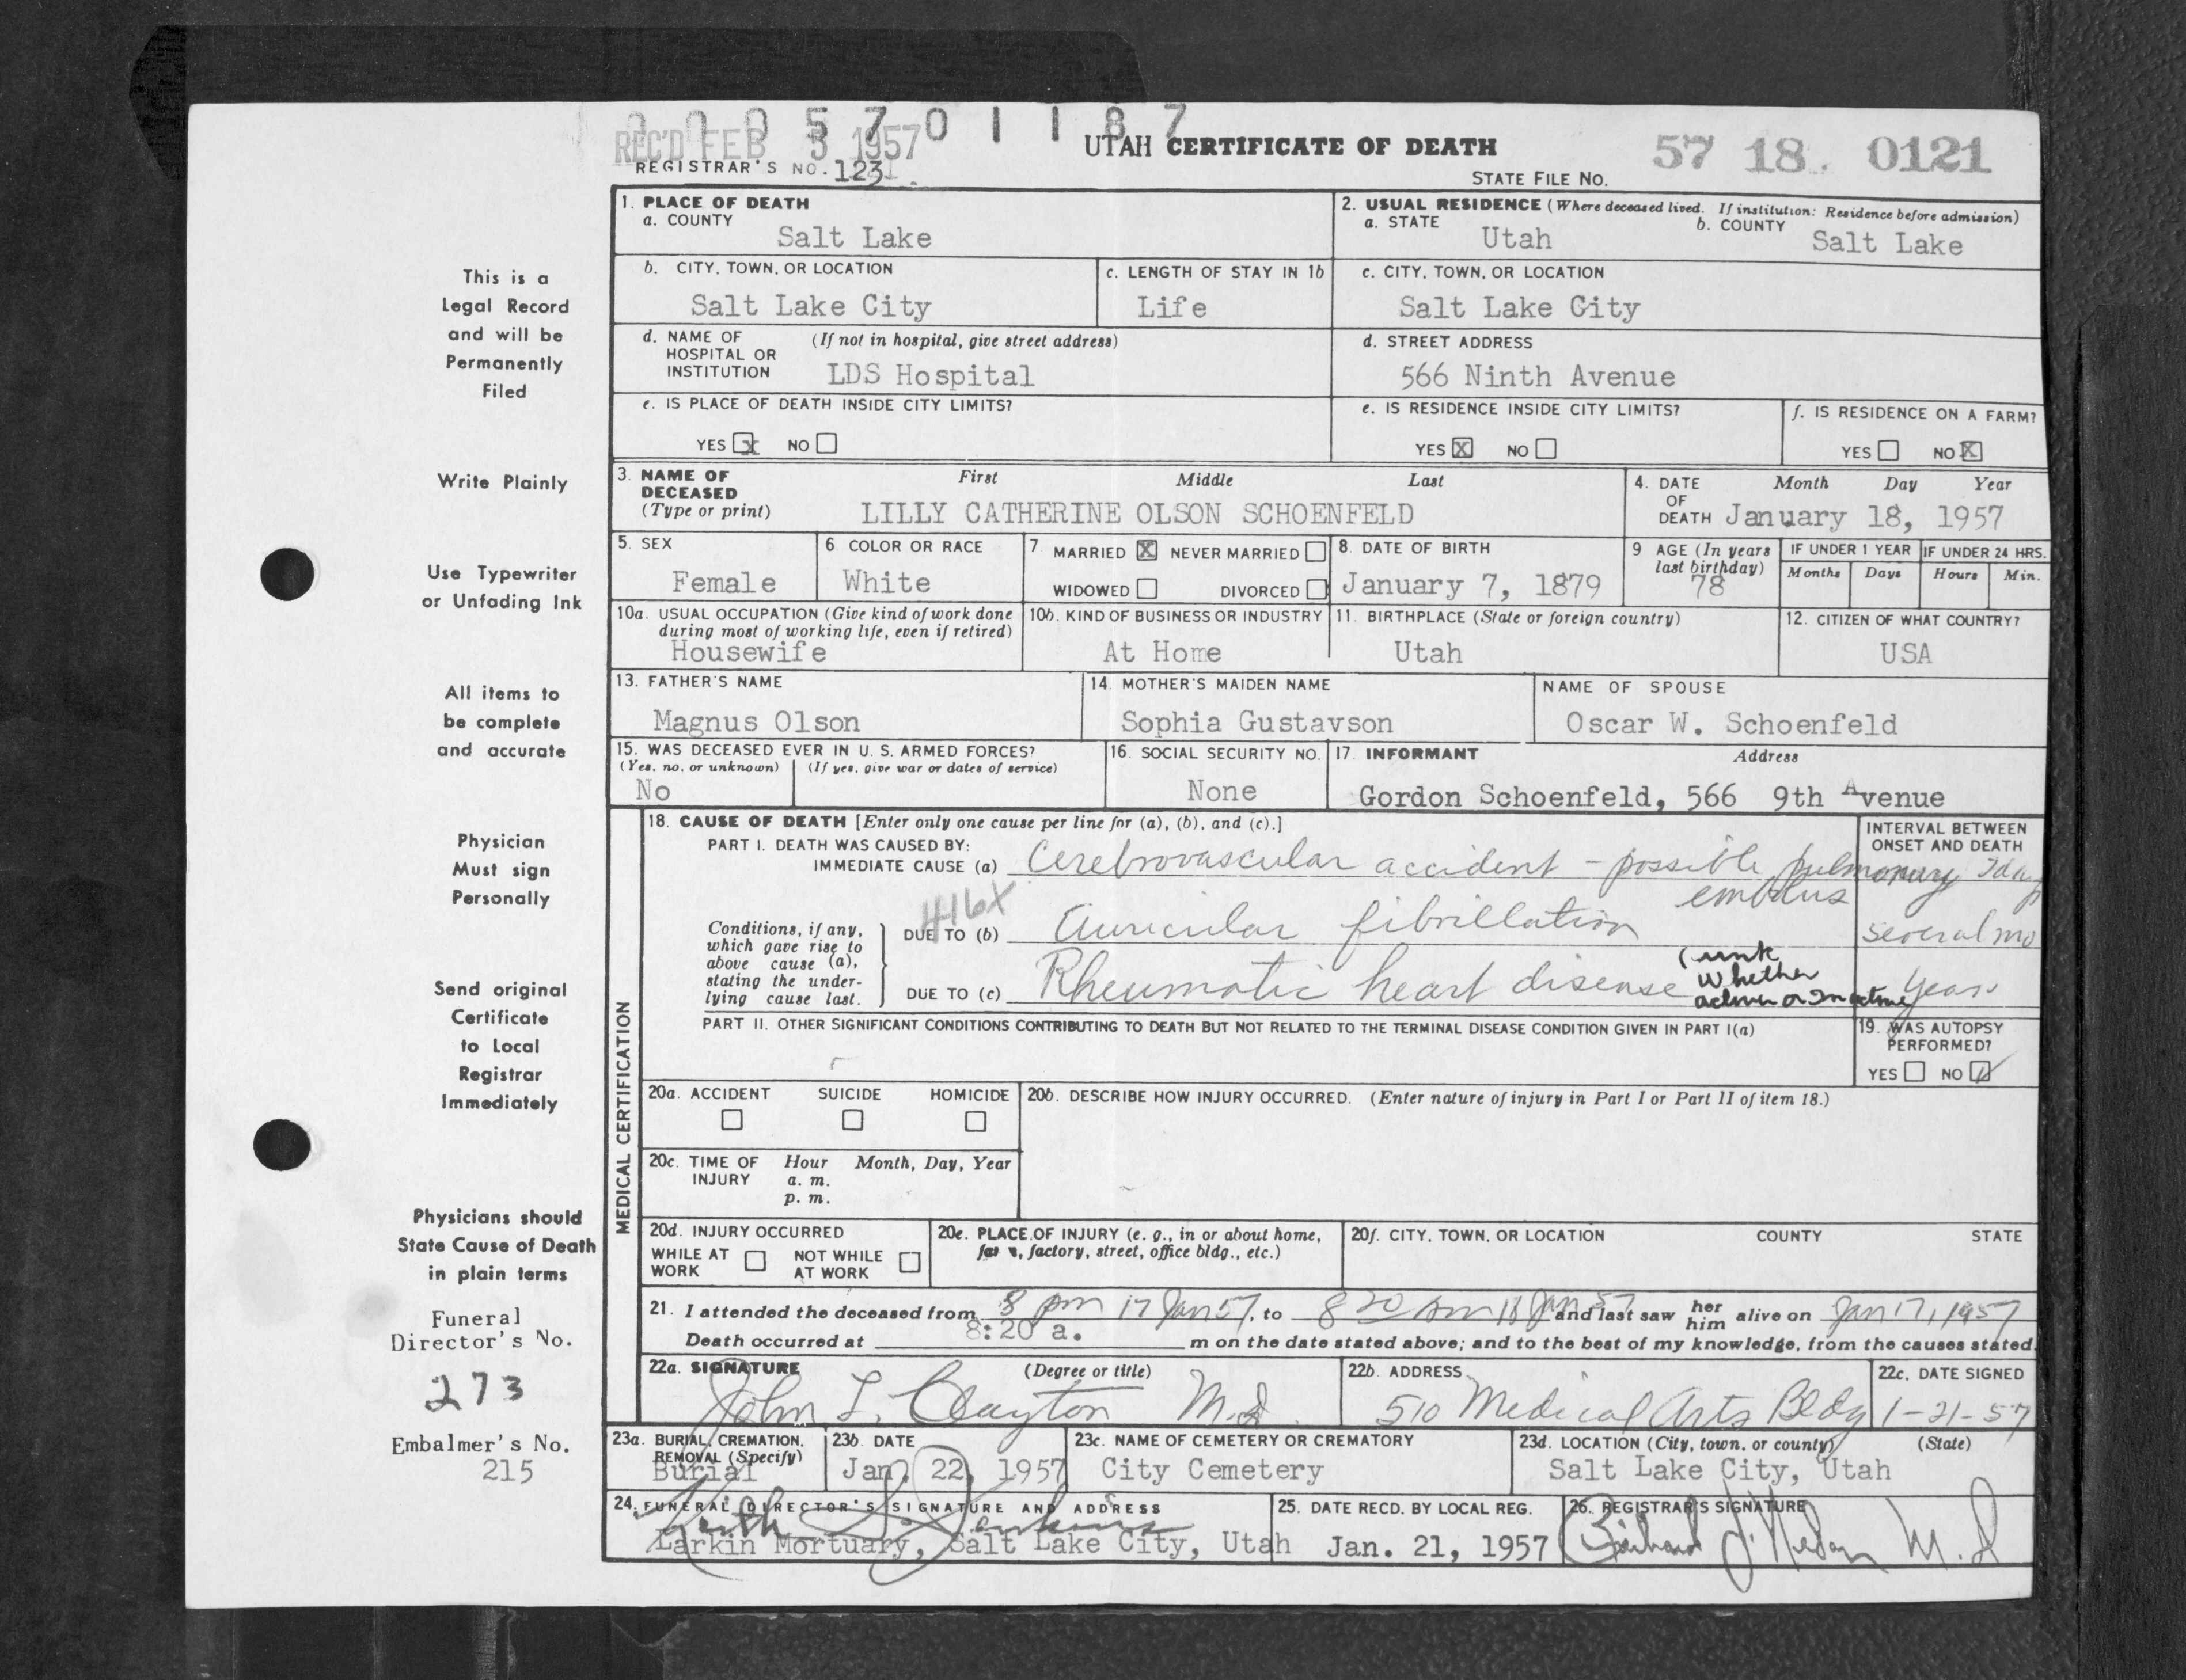 0 0 0 5 7 0 1 1 8 7
REC'D FEB 3 1957
UTAH CERTIFICATE OF DEATH
57 18. 0121
REGISTRAR'S NO. 123
STATE FILE NO.
1. PLACE OF DEATH
a. COUNTY
Salt Lake
2. USUAL RESIDENCE (Where deceased lived. If institution: Residence before admission)
a. STATE
Utah
b. COUNTY
Salt Lake
b. CITY, TOWN, OR LOCATION
Salt Lake City
c. LENGTH OF STAY IN 1b
Life
c. CITY, TOWN, OR LOCATION
Salt Lake City
d. NAME OF HOSPITAL OR INSTITUTION
(If not in hospital, give street address)
LDS Hospital
d. STREET ADDRESS
566 Ninth Avenue
e. IS PLACE OF DEATH INSIDE CITY LIMITS?
YES X NO
e. IS RESIDENCE INSIDE CITY LIMITS?
YES X NO
f. IS RESIDENCE ON A FARM?
YES NO X
3. NAME OF DECEASED (Type or print)
First Middle Last
LILLY CATHERINE OLSON SCHOENFELD
4. DATE OF DEATH
Month Day Year
January 18, 1957
5. SEX
Female
6 COLOR OR RACE
White
7 MARRIED X NEVER MARRIED
WIDOWED DIVORCED
8. DATE OF BIRTH
January 7, 1879
9 AGE (In years last birthday)
78
IF UNDER 1 YEAR
Months Days
IF UNDER 24 HRS.
Hours Min.
10a. USUAL OCCUPATION (Give kind of work done during most of working life, even if retired)
Housewife
10b. KIND OF BUSINESS OR INDUSTRY
At Home
11. BIRTHPLACE (State or foreign country)
Utah
12. CITIZEN OF WHAT COUNTRY?
USA
13. FATHER'S NAME
Magnus Olson
14. MOTHER'S MAIDEN NAME
Sophia Gustavson
NAME OF SPOUSE
Oscar W. Schoenfeld
15. WAS DECEASED EVER IN U. S. ARMED FORCES?
(Yes, no, or unknown) (If yes, give war or dates of service)
No
16. SOCIAL SECURITY NO.
None
17. INFORMANT Address
Gordon Schoenfeld, 566 9th Avenue
MEDICAL CERTIFICATION
18. CAUSE OF DEATH [Enter only one cause per line for (a), (b), and (c).]
INTERVAL BETWEEN ONSET AND DEATH
PART I. DEATH WAS CAUSED BY:
IMMEDIATE CAUSE (a) Cerebrovascular accident - possible pulmonary embolus
416X
Conditions, if any, which gave rise to above cause (a), stating the underlying cause last.
DUE TO (b) Auricular fibrillation several mo
DUE TO (c) Rheumatic heart disease (unk whether active or inactive years
PART II. OTHER SIGNIFICANT CONDITIONS CONTRIBUTING TO DEATH BUT NOT RELATED TO THE TERMINAL DISEASE CONDITION GIVEN IN PART I(a)
19. WAS AUTOPSY PERFORMED?
YES NO
20a. ACCIDENT SUICIDE HOMICIDE
20b. DESCRIBE HOW INJURY OCCURRED. (Enter nature of injury in Part I or Part II of item 18.)
20c. TIME OF INJURY
Hour Month, Day, Year
a. m.
p. m.
20d. INJURY OCCURRED
WHILE AT WORK NOT WHILE AT WORK
20e. PLACE OF INJURY (e. g., in or about home, farm, factory, street, office bldg., etc.)
20f. CITY, TOWN, OR LOCATION COUNTY STATE
21. I attended the deceased from 8 pm 17 Jan 57, to 8 20 am 18 Jan 57 and last saw her him alive on Jan 17, 1957
Death occurred at 8:20 a. m on the date stated above; and to the best of my knowledge, from the causes stated.
22a. SIGNATURE (Degree or title)
John L. Clayton M.D.
22b. ADDRESS
510 Medical Arts Bldg
22c. DATE SIGNED
1-21-57
23a. BURIAL, CREMATION, REMOVAL (Specify)
Burial
23b. DATE
Jan. 22, 1957
23c. NAME OF CEMETERY OR CREMATORY
City Cemetery
23d. LOCATION (City, town, or county) (State)
Salt Lake City, Utah
24. FUNERAL DIRECTOR'S SIGNATURE AND ADDRESS
Keith
Larkin Mortuary, Salt Lake City, Utah
25. DATE RECD. BY LOCAL REG.
Jan. 21, 1957
26. REGISTRAR'S SIGNATURE
M.D
This is a
Legal Record
and will be
Permanently
Filed
Write Plainly
Use Typewriter
or Unfading Ink
All items to
be complete
and accurate
Physician
Must sign
Personally
Send original
Certificate
to Local
Registrar
Immediately
Physicians should
State Cause of Death
in plain terms
Funeral
Director's No.
273
Embalmer's No.
215